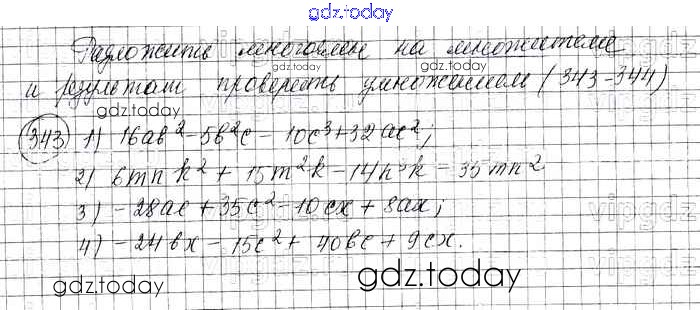 gdz.today
Разложить многочлен на множители
и результат проверить умножением (343-344)
gdz.today
gdz.today
343 1) 16ab²-5b²c-10c³+32ac²;
2) 6mnk²+15m²k-14n³k-35mn²
3) -28ac+35c²-10cx+8ax;
4) -24bx-15c²+40bc+9cx.
gdz.today
gdz.today